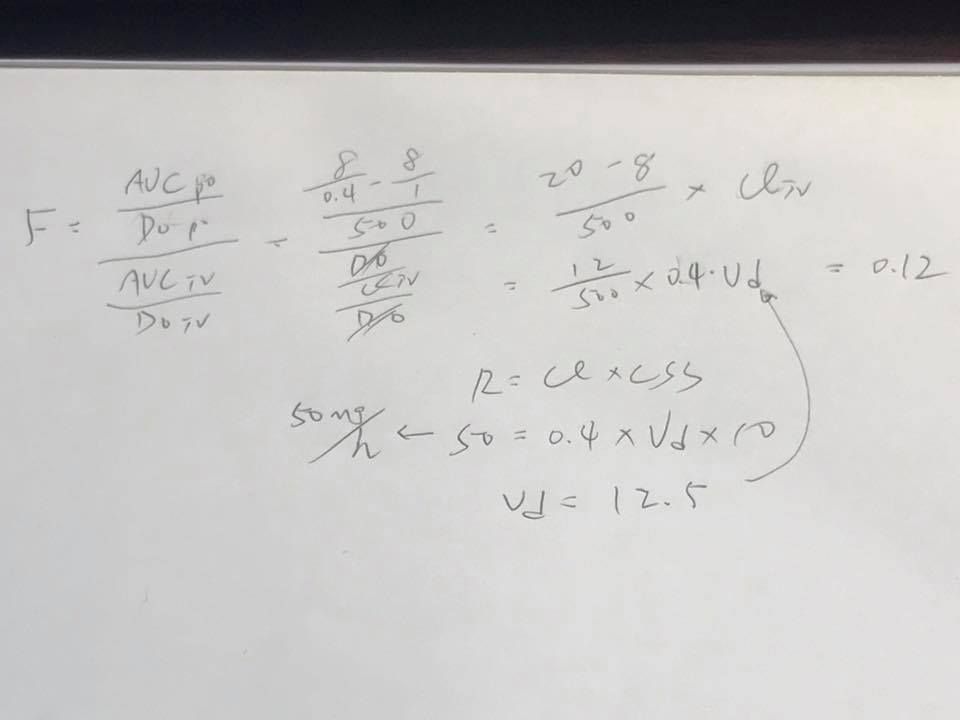 F = AUC po / Do po / AUC iv / Do iv = 8/0.4 - 8/1 / 500 / Do / Cl iv / Do = 20 - 8 / 500 × Cl iv
= 12/500 × 0.4 · Vd = 0.12
R = Cl × Css
50 mg/h ← 50 = 0.4 × Vd × 10
Vd = 12.5